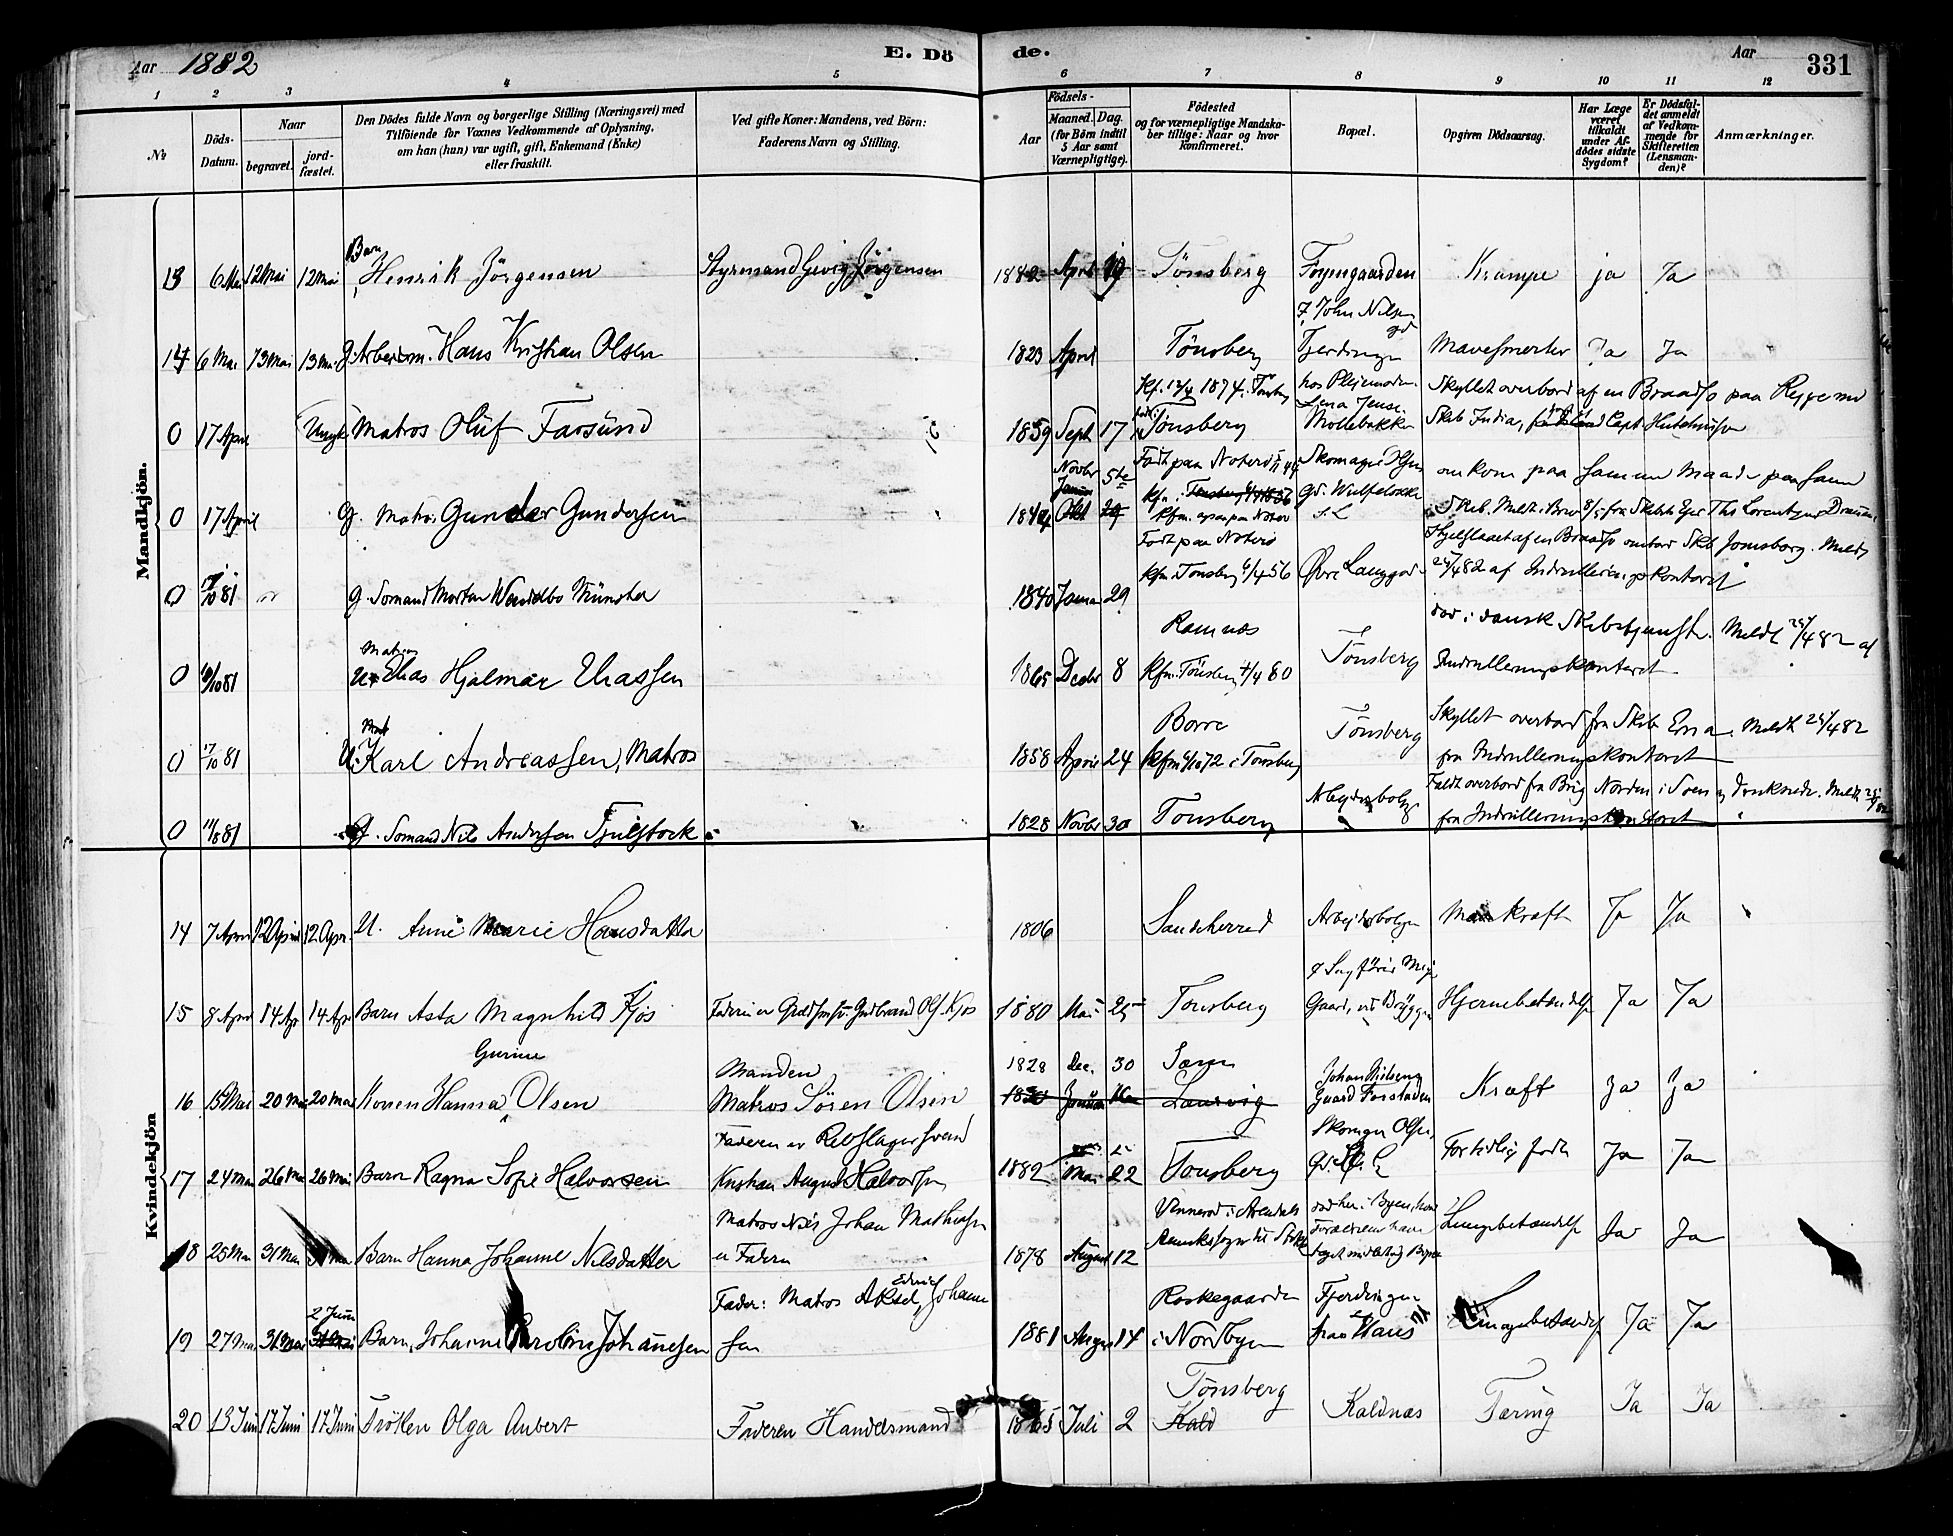 Aar 1882
E. Dö
de.
Aar
331
1 2 3 4 5 6 7 8 9 10 11 12
№
Döds-Datum.
Naar
begravet.
jord-fæstet.
Den Dödes fulde Navn og borgerlige Stilling (Næringsvei) med
Tilföiende for Voxnes Vedkommende af Oplysning,
om han (hun) var ugift, gift, Enkemand (Enke)
eller fraskilt.
Ved gifte Koner: Mandens, ved Börn:
Faderens Navn og Stilling.
Födsels-
Aar
Maaned. Dag.
(for Börn indtil
5 Aar samt
Værnepligtige).
Födested
og for værnepligtige Mandska-
ber tillige: Naar og hvor
Konfirmeret.
Bopæl.
Opgiven Dödsaarsag.
Har Læge
været
tilkaldt
under Af-
dödes sidste
Sygdom?
Er Dödsfal-
det anmeldt
af Vedkom-
mende for
Skifteretten
(Lensman-
den)?
Anmærkninger.
Mandkjön.
13 6 Mai 12 Mai 12 Mai Barn Henrik Jörgensen Styrmand Jörgensen 1882 April 19 Tönsberg Foyngaarden Krampe ja Ja
14 6 Mai 13 Mai 13 Mai g. Arbeidsm. Hans Kristian Olsen 1823 April Tönsberg John Nilsen Fjerdingen Mavesmerter Ja Ja
0 17 April Ungk. Matros Oluf Farsund 1859 Sept 17 Kf. 12/4 1874 i Tönsberg Tönsberg hos Plejemoder Lena Jens. Möllebakken Skyllet overbord af en Braadsö paa Rejse med
Skib India, Capt. Hutchinson
0 17 April g. Matros Gunder Gundersen Novbr 5te Födt paa Noterö Skomager omkom paa samme Maade paa samme
Skib. Meldt i Brev 8/5 fra Skibets Ejer Ths Lorentzen Drammen
0 17/10 81 g. Sömand Morten Wendelbo Münster 1840 Januar 29 Födt paa Noterö kfm. Tönsberg 6/4 56 Övre Langgade Ihjelslaaet af en Braadsö ombord Skb Jomsborg. Meldt
25/4 82 af Indrulleringskontoret
0 9/10 81 U. Matros Elias Hjalmar Eliassen 1865 Decbr 8 Ramnæs kfm. Tönsberg 4/4 80 Tönsberg död i dansk Skibstjeneste. Meldt 25/4 82 af
Indrulleringskontoret
0 17/10 81 U. Karl Andreassen, Matros 1858 April 24 Borre kfm 6/10 72 i Tönsberg Tönsberg Skyllet overbord fra Skib Erna. Meldt 25/4 82
fra Indrulleringskontoret
0 11/8 81 g. Sömand Nils Andersen Fjelstock 1828 Novbr 30 Tönsberg Arbejderbolig Faldt overbord fra Brig Norden i Söen og druknede. Meldt 25/4 82
fra Indrulleringskontoret
Kvindekjön
14 7 April 12 April 12 Apr. U. Anne Marie Hansdatter 1806 Sandeherred Arbejderboligen Mavekræft Ja Ja
15 8 April 14 Apr 14 Apr Barn Asta Magnhild Kjös Faderen er Guldsmsv. Gudbrand Ols. Kjös 1880 Mai 25 Tönsberg Sagförer Gaard, ved Bryggen Hjernebetændelse Ja Ja
16 15 Mai 20 Mai 20 Mai Konen Hanna Gurine Olsen Manden Matros Sören Olsen 1828 Dec. 30 Sæm Laurvig Johan Nielsens Gaard Farstaden Kræft Ja Ja
17 24 Mai 26 Mai 26 Mai Barn Ragna Sofie Halvorsen Faderen er Rebslagersvend Kristian August Halvorsen 1882 Mai 22 Tönsberg Skomager Olsen For tidlig födt Ja Ja
18 28 Mai 31 Mai 31 Mai Barn Hanna Johanne Nilsdatter Matros Nils Johan Mathiasen er Faderen 1878 August 12 Lungebetændelse Ja Ja
19 27 Mai 31 Mai 2 Juni Barn, Johanne Karoline Johannesen Fader: Matros Aksel Edvard Johannesen 1881 August 14 Roskegaarden i Nordbyen Fjerdingen Lungebetændelse Ja Ja
20 13 Juni 17 Juni 17 Juni Fröken Olga Aubert Faderen Handelsmand 1865 Juli 2 Tönsberg Kald Kaldnæs Tæring Ja Ja